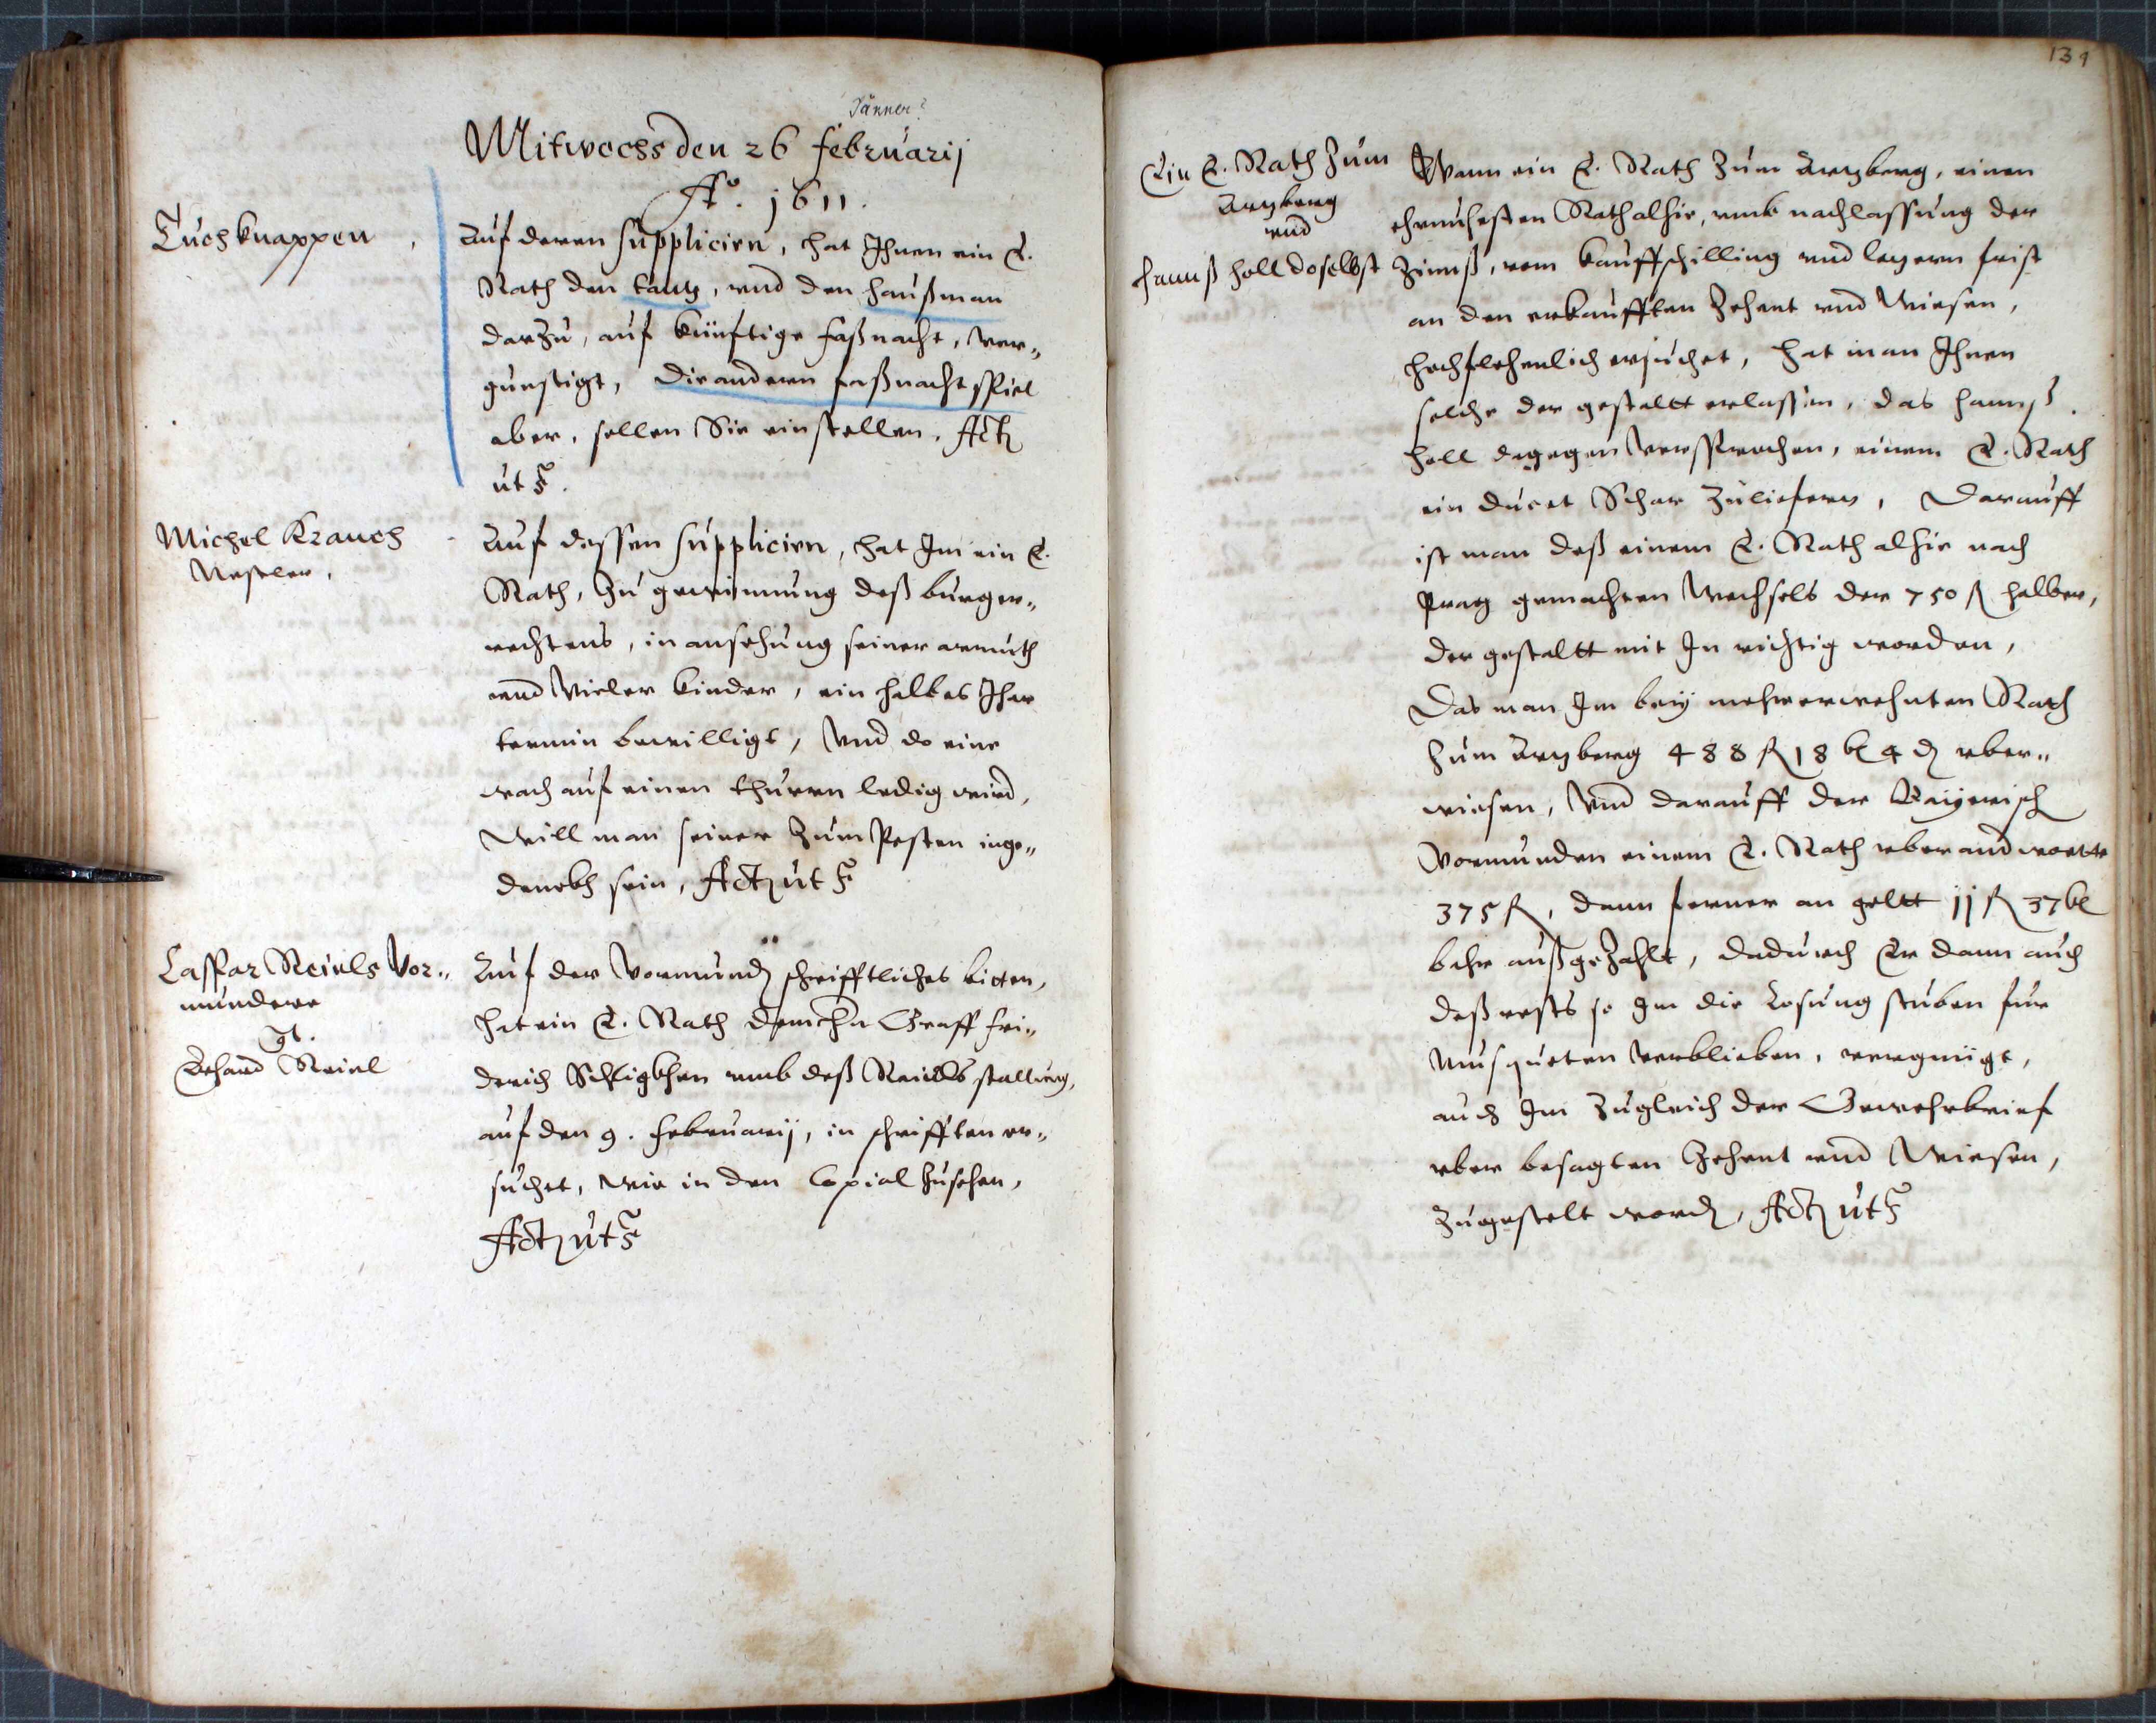 Jänner?
Mitwochs den 26 februarij
Aº. 1611.
Tuchknappen
Auf deren supplicirn, hat Ihnen ein E.
Rath den tantz, vnd den haußman
darzu, auf künftige faßnacht, ver„
gunstigt, die andern faßnacht spiel
aber, sollen Sie einstellen, Act
ut s.
Michel Krauch
Nestler.
Auf dessen supplicirn, hat Im ein E.
Rath, Zu gewinnung deß burger„
rechtens, in ansehung seiner armuth
vnd Vieler kinder, ein halbes Jhar
termin bewilligt, Vnd do eine
wach auf einen thurrn ledig wird,
Will man seiner Zum Pesten inge„
denckh sein, Act ut s
Caspar Reiels Vor„
mundere
Erhard Reiel
Auf der Vormund schrifftliches bitten,
hat ein E. Rath Graff fri„
derich Schligkhen vmb deß Reiels stallung,
auf den 9. februarij, in schrifften er„
suchet, wie in den Copial Zusehen,
Act ut s
134
Ein E. Rath Zum
Artzberg
vnd
hannß holl doselbst
Wann ein E. Rath Zum Artzberg, einen
ehrnuhesten Rath alhie, vmb nachlassung der
Zinnß, vom kauffschilling vnd lengern frist
an den erkaufften Zehent vnd Wiesen,
hochflehenlich ersuchet, hat man Ihnen
solche der gestaltt erlassen, das hannß
holl dagegen Versprochen, einem E. Rath
ein ducet Schar Zuliefern, Darauff
ist man deß einem E. Rath alhie nach
Prag gemachten Wechsels der 750 fl halber,
der gestaltt mit In richtig worden,
Das man Im bey mehrerwehnten Rath
Zum Artzberg 488 fl 18 kr 4 d vber„
wiesen, Vnd darauff der Bayerisch
Vormunden einem E. Rath vberandwortte
375 fl, dann ferner an geltt jj fl 37 kr
bahr außgezahlt, dadurch Er dann auch
deß rests so Im die Losung stuben fur
Musqueten verblieben, vergnügt,
auch Im Zugleich der Gewehrbrief
vber besagten Zehent vnd Wiesen,
Zugestelt word, Act ut s